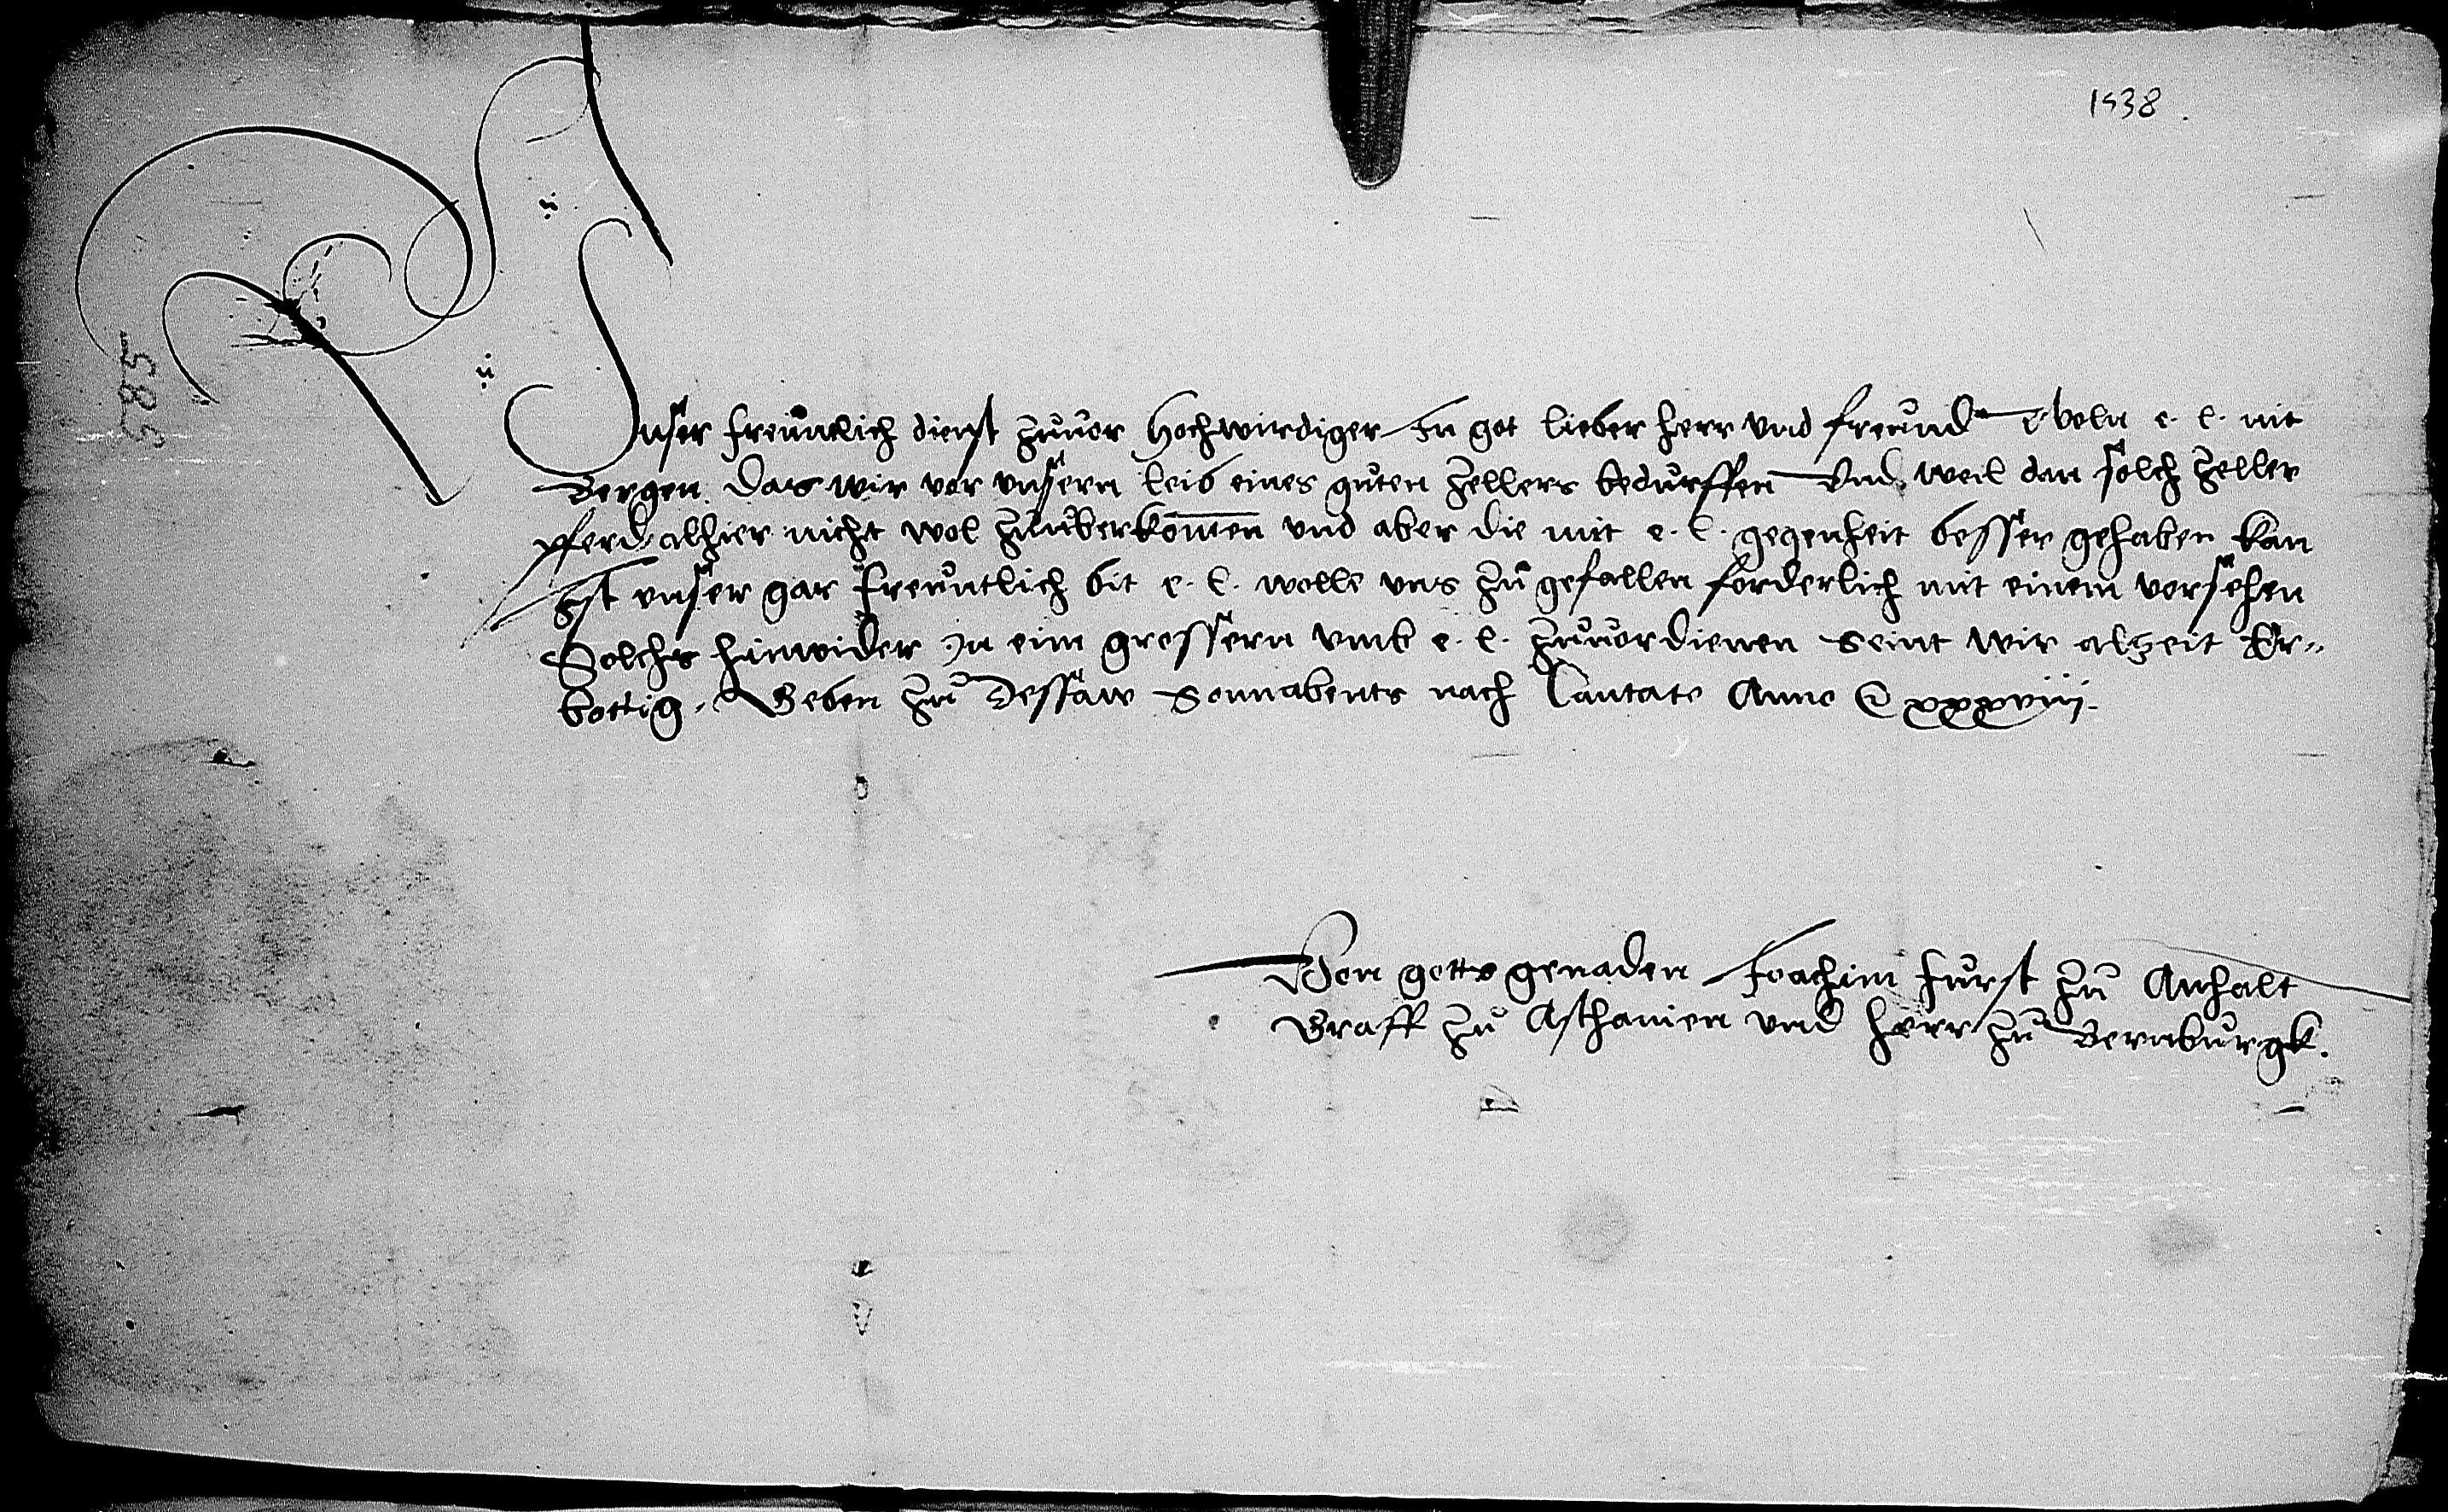 1538.
585
Unser freuntlich dienst zuuor Hochwirdiger In got lieber herr vnd freund woln e. l. nit
Bergen. Das wir vor vnsern leib eines guten Zellers bedurffen Vnd weil dan solch Zeller
pferd alhier nicht wol zuuberkomen vnd aber die mit e. l. gegenheit besser gehaben kan
Ist vnser gar freuntlich bit e. l. wolle vns zu gefallen forderlich mit einem vorsehen
Solchs hinwider in eim grossern vmb e. l. zuuordienen Seint wir alzeit Er„
bottig. Geben zu Dessaw Sonnabents nach Cantate Anno xxxviij.
Von gotts genaden Joachim furst zu Anhalt
Graff zu Aschanien vnd herr zu Bernburgk.